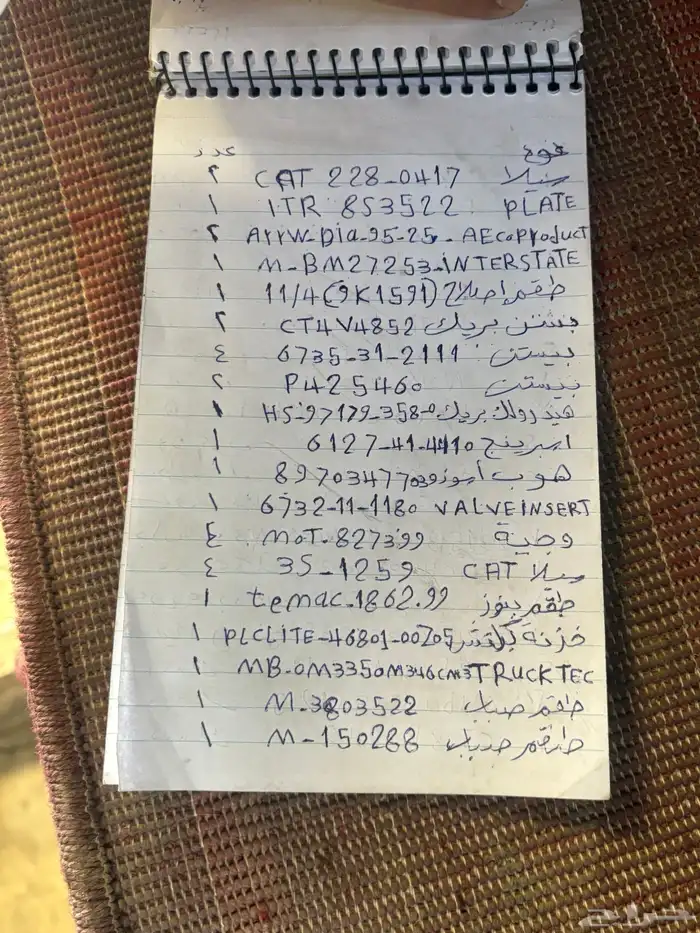 نوع عدد
سلا CAT 228-0417 ٢
PLATE ITR 853522 ١
Arrw-Dia-95-25-AEcoproduct ٢
M-BM27253-INTERSTATE ١
طقم إصلاح (9K1591) 11/4 ١
بستن بريك CT4V4852 ٢
بيستن 6735-31-2111 ٤
بيستن P425460 ٢
هيدرولك بريك HS-97179-358-0 ١
اسبرينج 6127-41-4410 ١
هوب أيسوزو ١
6732-11-1180 VALVE INSERT ١
وجية MOT-827399 ٤
سلا CAT 3S-1259 ٤
طقم بنوز temac-1862.99 ١
خزنة PLCLITE-46801-00Z05 ١
MB-OM335OM346CM3TRUCKTEC ١
طقم صباب M-3803522 ١
طقم صباب M-150288 ١
حراج